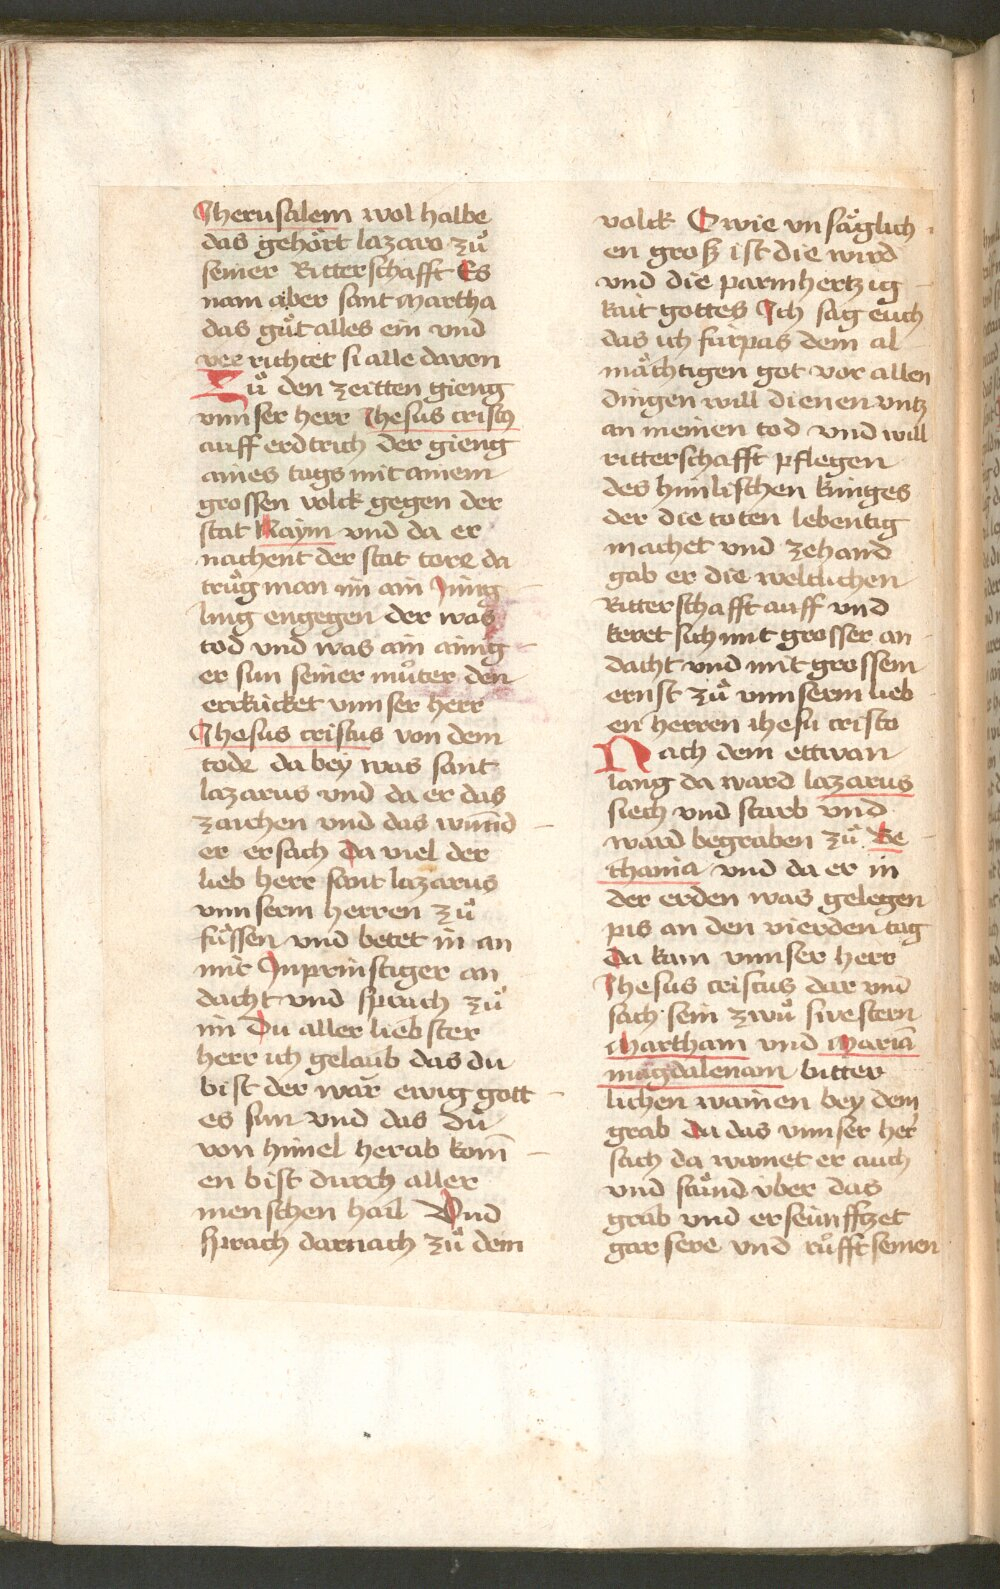 Jherusalem wol halbe
das gehört lazaro zů
seiner Ritterschafft Es
nam aber sant Martha
das gůt alles ein vnd
ver richtet si alle davon
Zů den zeitten gieng
vnnser herr Jhesus cristꝯ
auff erdtrich der gieng
aines tags mit ainem
grossen volck gegen der
stat Naÿm vnd da er
nachent der stat tore da
trůg man im ain Jüng
ling engegen der was
tod vnd was ain ainig
er sun seiner můter den
erkücket vnnser herr
Jhesus cristus von dem
tode da bey was sant
lazarus vnd da er das
zaichen vnd das wund
er ersach Da viel der
lieb herr sant lazarus
vnnserm herren zů
füssen vnd betet in an
mit Jnprinstiger an
dacht vnd sprach zů
im Du aller liebster
herr ich gelaub das du
bist der war ewig gott
es sun vnd das du
von himel herab kom̄
en bist durch aller
menschen hail Vnd
sprach darnach zů dem
volck O wie vnsäglich
en groß ist die wird
vnd die parmhertzig
kait gottes Ich sag euch
das ich fürpas dem al
mächtigen got vor allen
dingen will dienen vntz
an meinen tod vnd will
ritterschafft pflegen
des himlischen künges
der die toten lebentig
machet vnd zehand
gab er die weltlichen
Ritterschafft auff vnd
keret sich mit grosser an
dacht vnd mit grossem
ernst zů vnnserm lieb
en herren ihesu cristo
Nach dem ettwan
lang da ward lazarus
siech vnd starb vnd
ward begraben zů Be
thania vnd da er in
der erden was gelegen
pis an den vierden tag
Da kam vnnser herr
Jhesus cristus dar vnd
sach sein zwů swestern
Martham vnd Mariā
magdalenam bitter
lichen wainen bey dem
grab Da das vnnser her
sach da wainet er auch
vnd stůnd vber das
grab vnd erseünfftzet
gar sere vnd růfft seinen